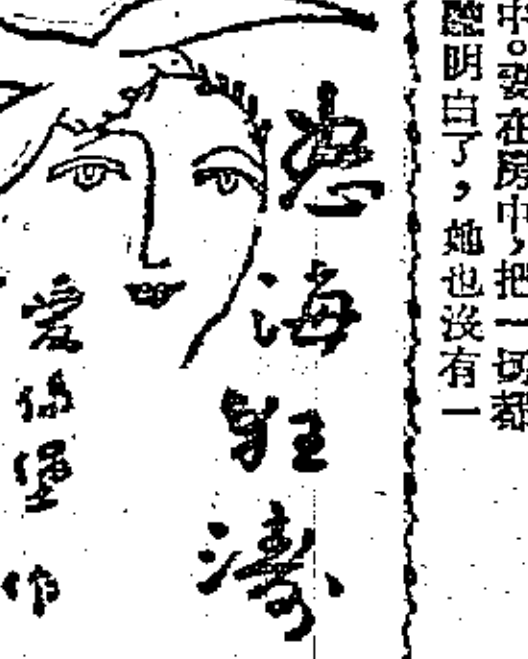 在房中，把一切都
聽明白了，她也沒有一
海狂濤
愛倫堡 作